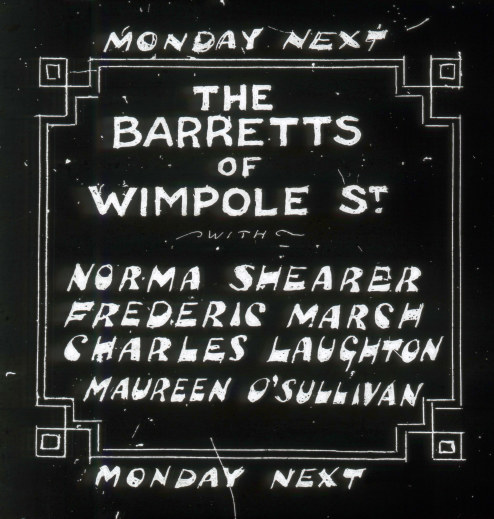 MONDAY NEXT
THE
BARRETTS
OF
WIMPOLE ST.
WITH
NORMA SHEARER
FREDERIC MARCH
CHARLES LAUGHTON
MAUREEN O'SULLIVAN
MONDAY NEXT